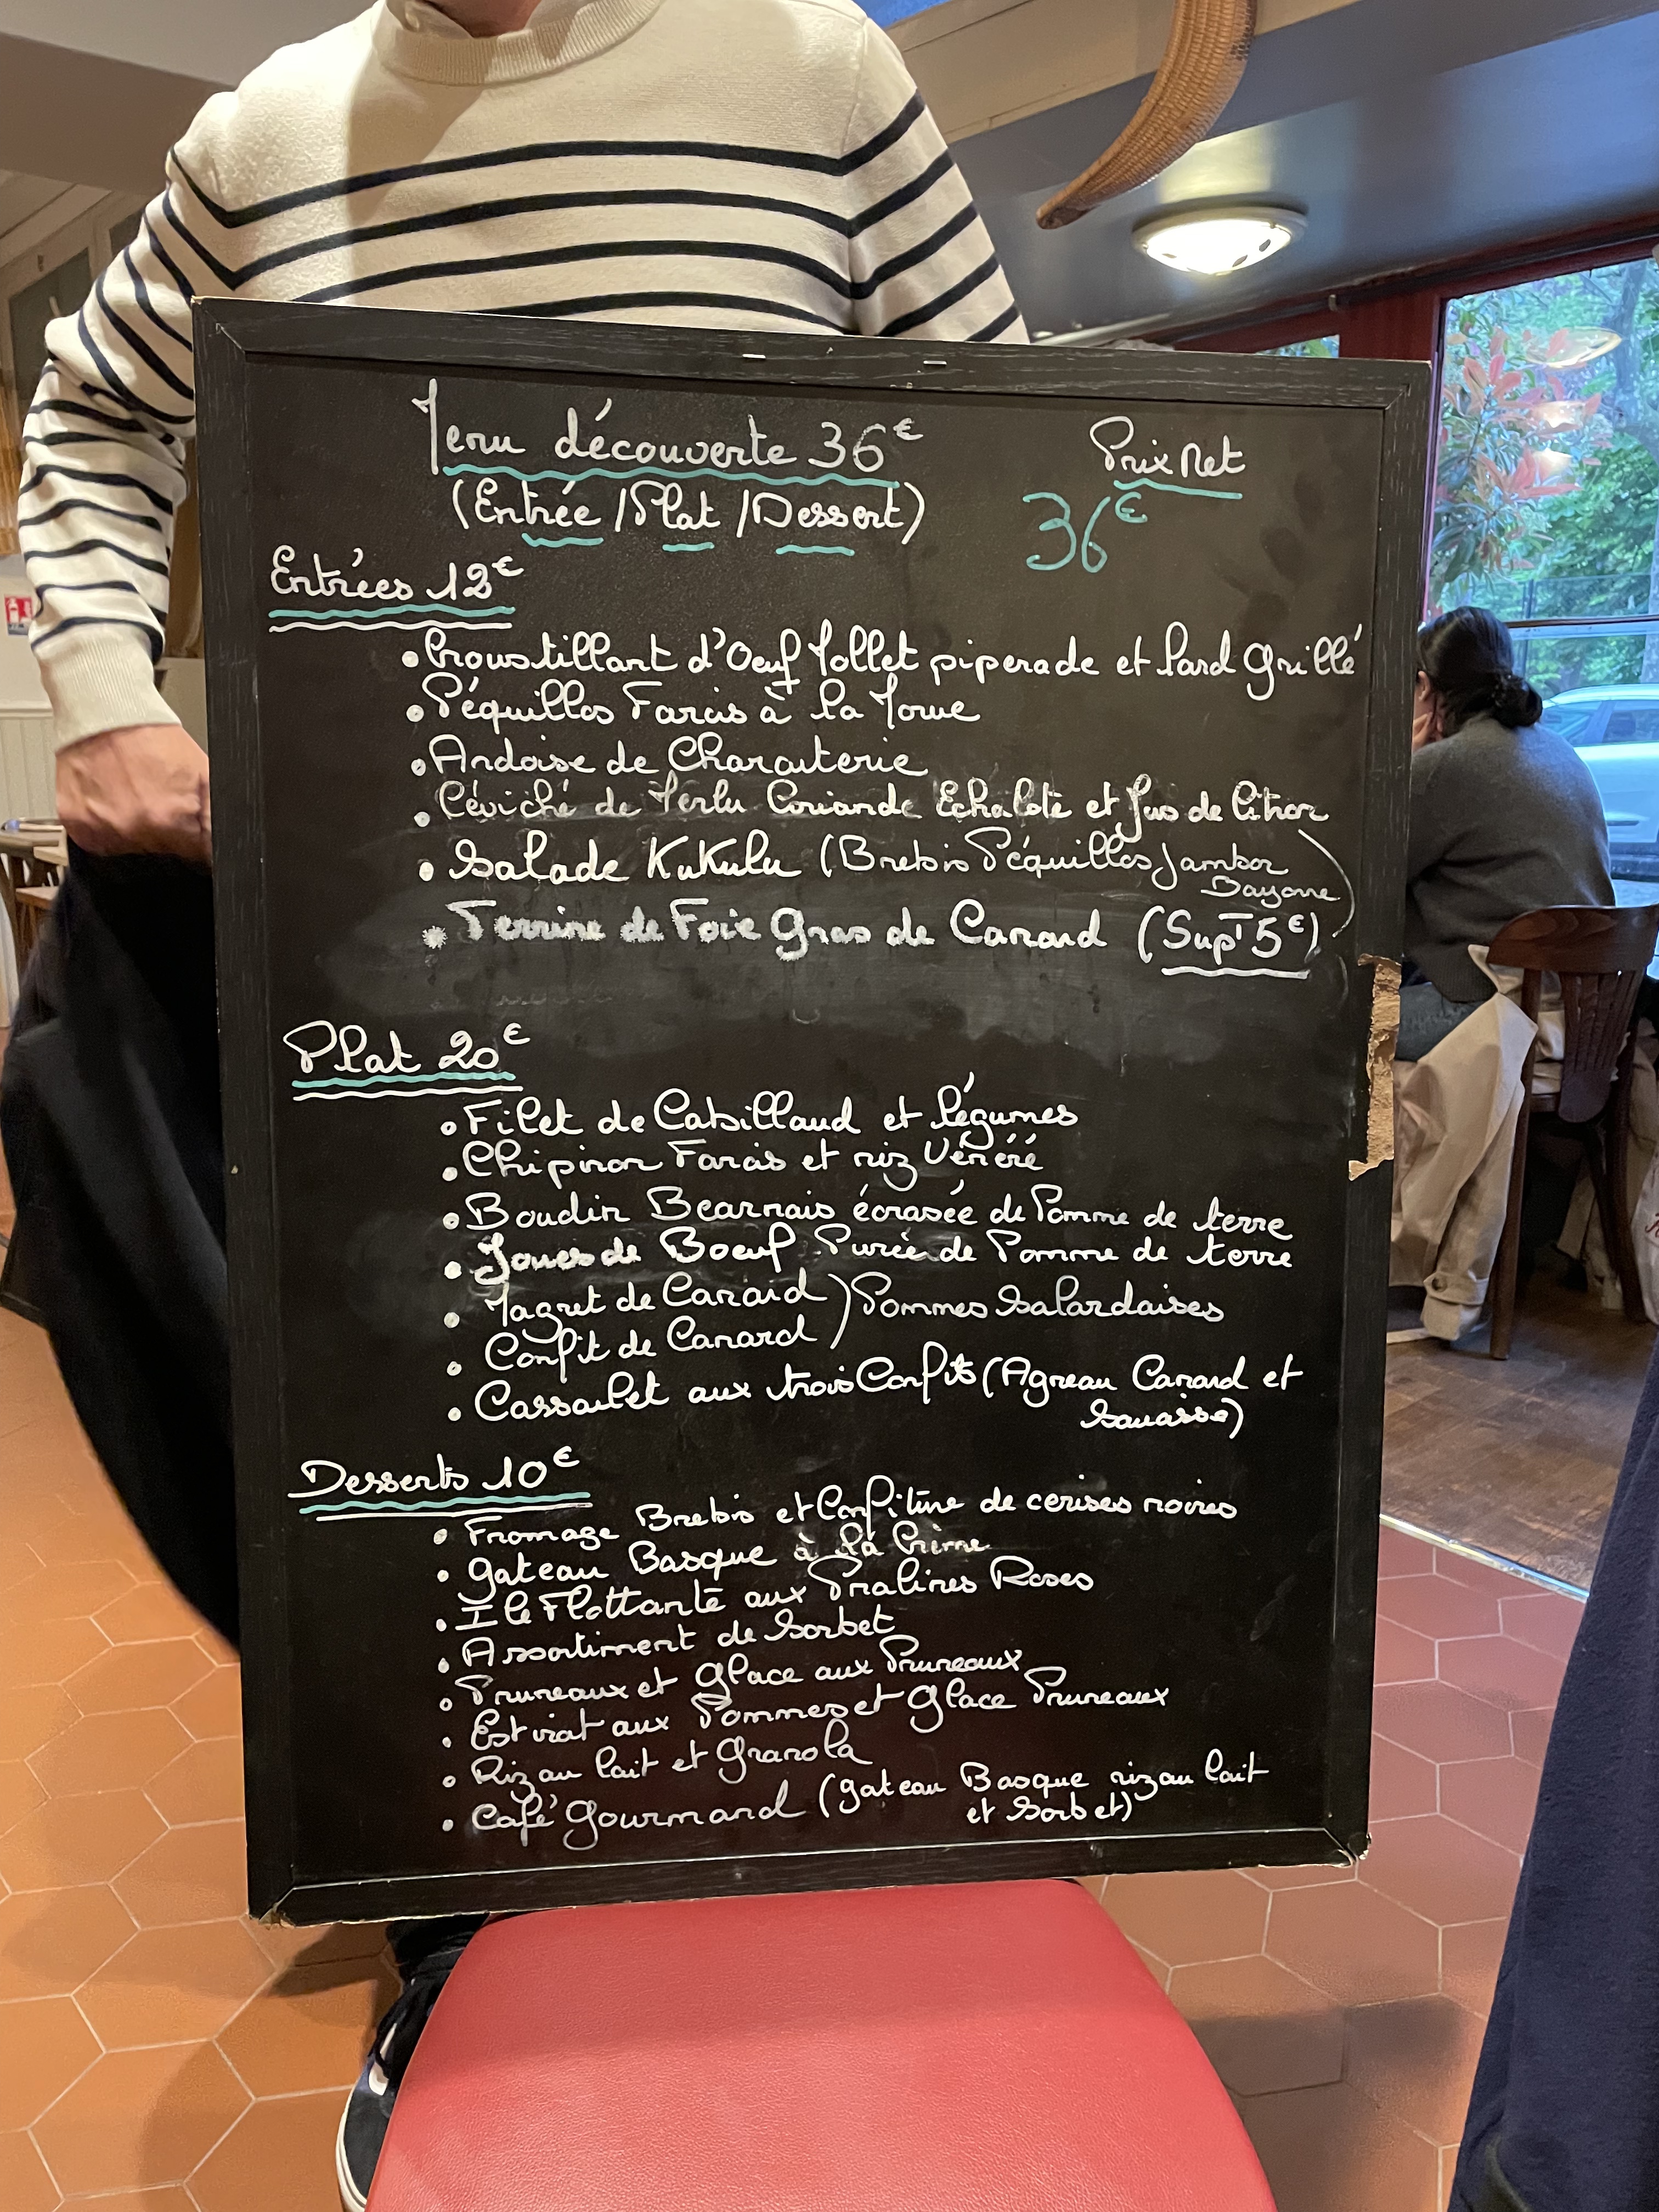 Menu découverte 36€
(Entrée / Plat / Dessert)
Prix Net
36€
Entrées 12€
• Croustillant d'Oeuf Mollet piperade et Lard Grillé
• Péquillos Farcis à la Morue
• Ardoise de Charcuterie
• Céviché de Merlu Coriande Echalote et Jus de Citron
• Salade KuKulu (Brebis Péquillos Jambon
Bayonne
• Terrine de Foie Gras de Canard (Supt 5€)
Plat 20€
• Filet de Cabillaud et légumes
• Chipiron Farcis et riz Vénéré
• Boudin Bearnais écrasée de Pomme de terre
• Joues de Boeuf Purée de Pomme de terre
• Magret de Canard ) Pommes Salardaises
• Confit de Canard
• Cassoulet aux trois Confits (Agneau Canard et
Saucisse)
Desserts 10€
• Fromage Brebis et Confiture de cerises noires
• Gateau Basque à la Crème
• Ile Flottante aux Pralines Roses
• Assortiment de Sorbet
• Pruneaux et Glace aux Pruneaux
• Estivat aux Pommes et Glace Pruneaux
• Riz au lait et Granola
• Café Gourmand (Gateau Basque riz au lait
et Sorbet)